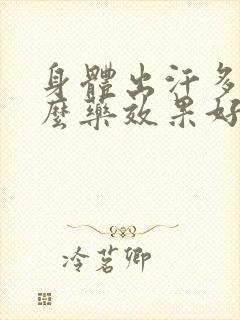 身體出汗多
麼藥效果好
冷茗卿